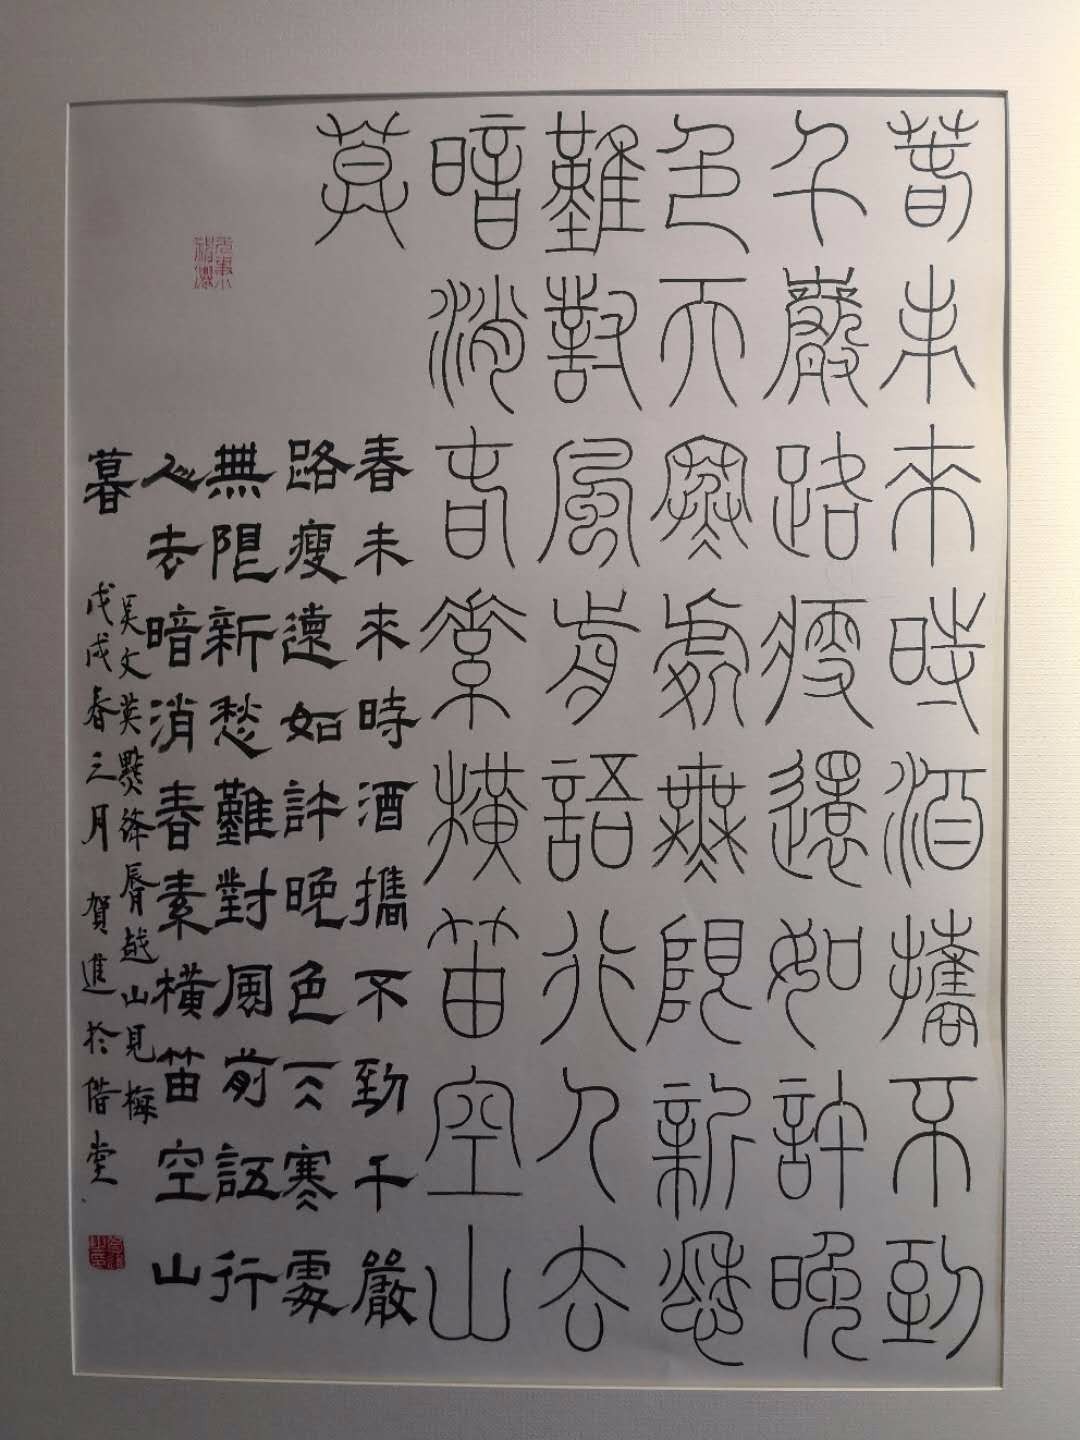 春未來時酒攜不到
千嚴路瘦還如許晚
色天寒處無限新愁
難對風前語行人去
暗消春素橫笛空山
莫
春未來時酒攜不到千嚴
路瘦還如許晚色天寒處
無限新愁難對風前語行
人去暗消春素橫笛空山
暮
吳文英點絳脣越山見梅
戊戌春三月 賀進於偕堂